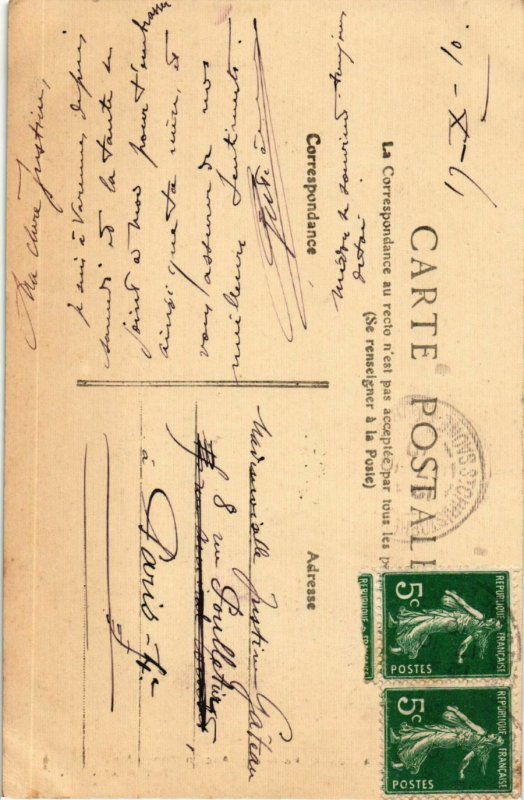 CARTE POSTALE
La Correspondance au recto n'est pas acceptée par tous les
(Se renseigner à la Poste)
Correspondance
Adresse
Ma chère Justine,
je suis à Varenne depuis
samedi et la tante se
joint à moi pour t'embrasser
ainsi que ta mère, et
vous assurer de nos
meilleurs sentiments
Mademoiselle Justine Gâteau
8 rue Poulletier
à Paris
REPUBLIQUE FRANÇAISE
5c
POSTES
REPUBLIQUE FRANÇAISE
5c
POSTES
REPUBLIQUE FRANÇAISE